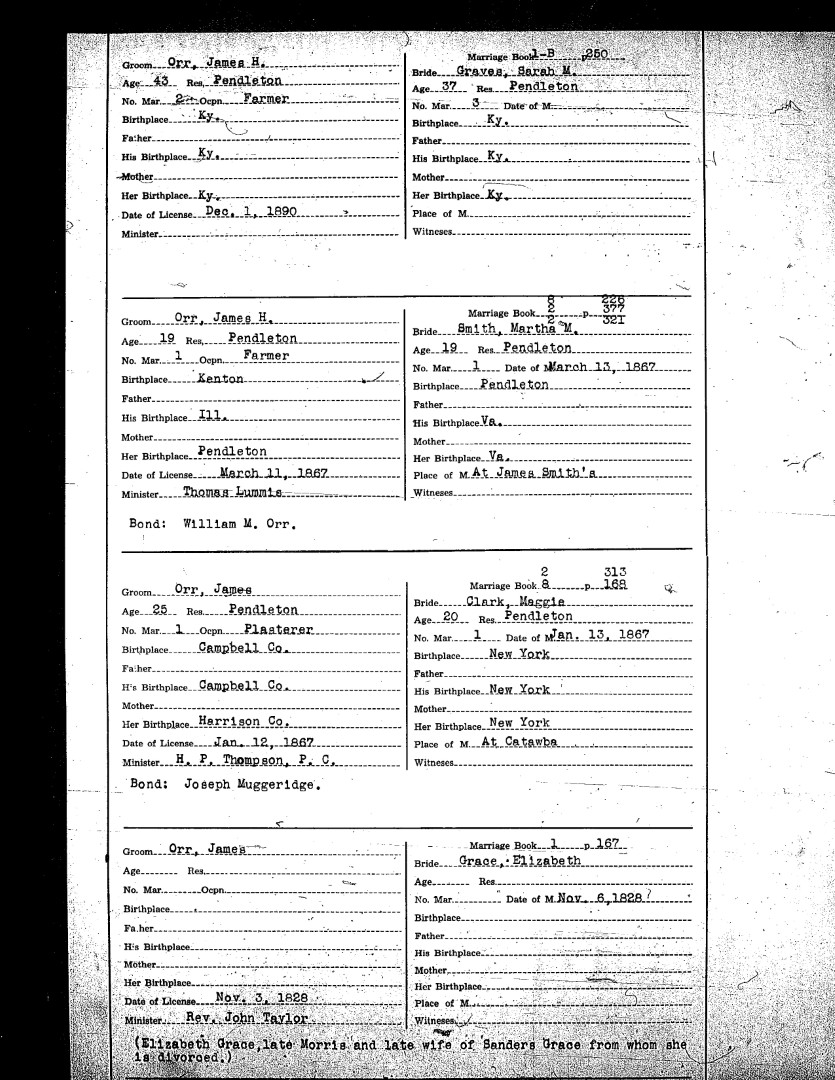 Groom Orr, James H.
Age 43 Res. Pendleton
No. Mar. 2 Ocpn. Farmer
Birthplace Ky.
Father
His Birthplace Ky.
Mother
Her Birthplace Ky.
Date of License Dec. 1, 1890
Minister
Marriage Book 1-B p. 250
Bride Graves, Sarah M.
Age 37 Res. Pendleton
No. Mar. 3 Date of M.
Birthplace Ky.
Father
His Birthplace Ky.
Mother
Her Birthplace Ky.
Place of M.
Witnesses
Groom Orr, James H.
Age 19 Res. Pendleton
No. Mar. 1 Ocpn. Farmer
Birthplace Kenton
Father
His Birthplace Ill.
Mother
Her Birthplace Pendleton
Date of License March 11, 1867
Minister Thomas Lummis
8 226
Marriage Book 2 p. 377
2 321
Bride Smith, Martha M.
Age 19 Res. Pendleton
No. Mar. 1 Date of M. March 13, 1867
Birthplace Pendleton
Father
His Birthplace Va.
Mother
Her Birthplace Va.
Place of M. At James Smith's
Witnesses
Bond: William M. Orr.
Groom Orr, James
Age 25 Res. Pendleton
No. Mar. 1 Ocpn. Plasterer
Birthplace Campbell Co.
Father
His Birthplace Campbell Co.
Mother
Her Birthplace Harrison Co.
Date of License Jan. 12, 1867
Minister H. P. Thompson, P. C.
2 313
Marriage Book 8 p. 168
Bride Clark, Maggie
Age 20 Res. Pendleton
No. Mar. 1 Date of M. Jan. 13, 1867
Birthplace New York
Father
His Birthplace New York
Mother
Her Birthplace New York
Place of M. At Catawba
Witnesses
Bond: Joseph Muggeridge.
Groom Orr, James
Age Res.
No. Mar. Ocpn.
Birthplace
Father
His Birthplace
Mother
Her Birthplace
Date of License Nov. 3, 1828
Minister Rev. John Taylor
Marriage Book 1 p. 167
Bride Grace, Elizabeth
Age Res.
No. Mar. Date of M. Nov. 6, 1828
Birthplace
Father
His Birthplace
Mother
Her Birthplace
Place of M.
Witnesses
(Elizabeth Grace, late Morris and late wife of Sanders Grace from whom she
is divorced.)